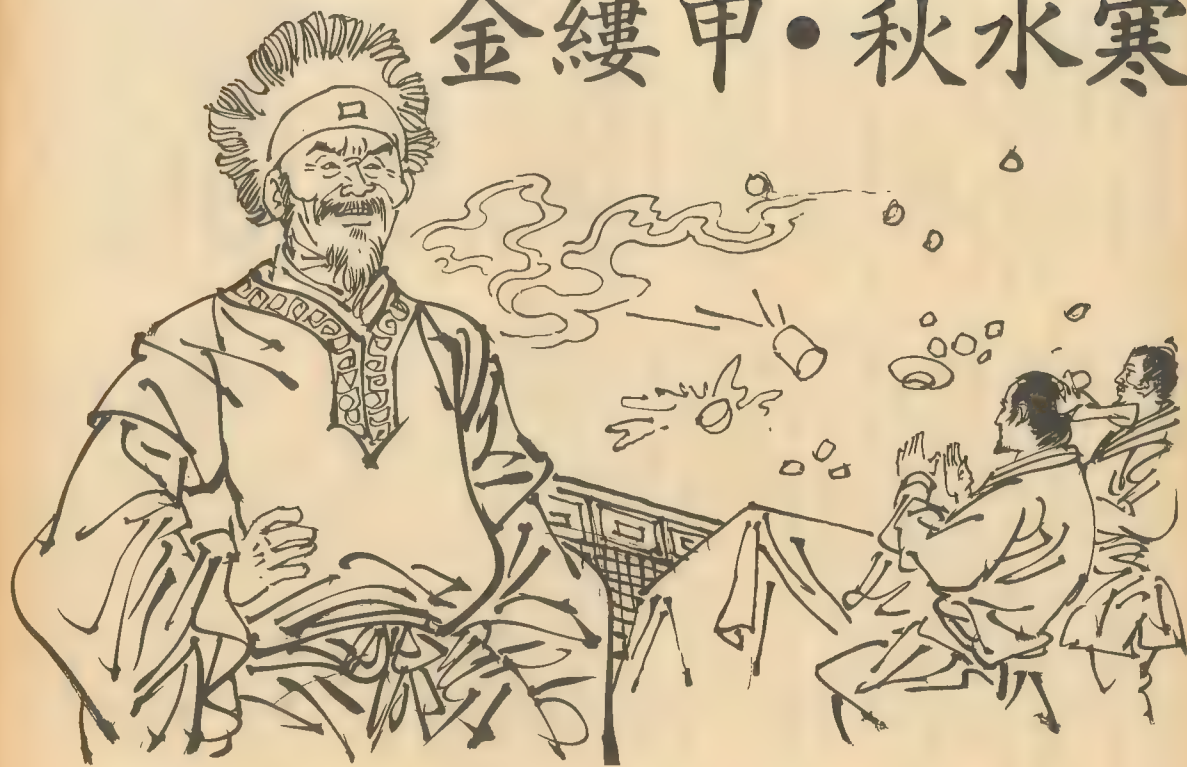 金縷甲•秋水寒